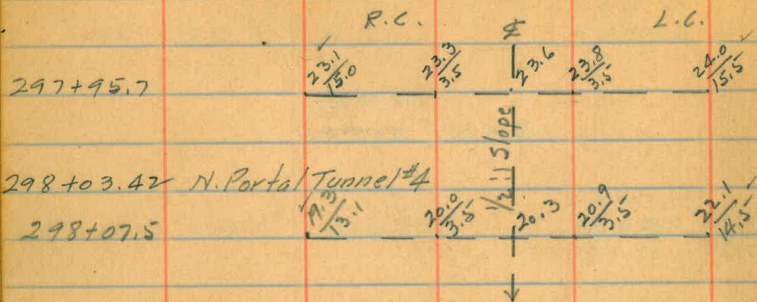 R.C. ℄ L.C.
297+95.7 23.1/15.0 23.3/3.5 23.6 23.8/3.5 24.0/15.5
1/2:1 Slope
298+03.42 N. Portal Tunnel #4
298+07.5 19.3/13.1 20.0/3.5 20.3 20.9/3.5 22.1/14.5